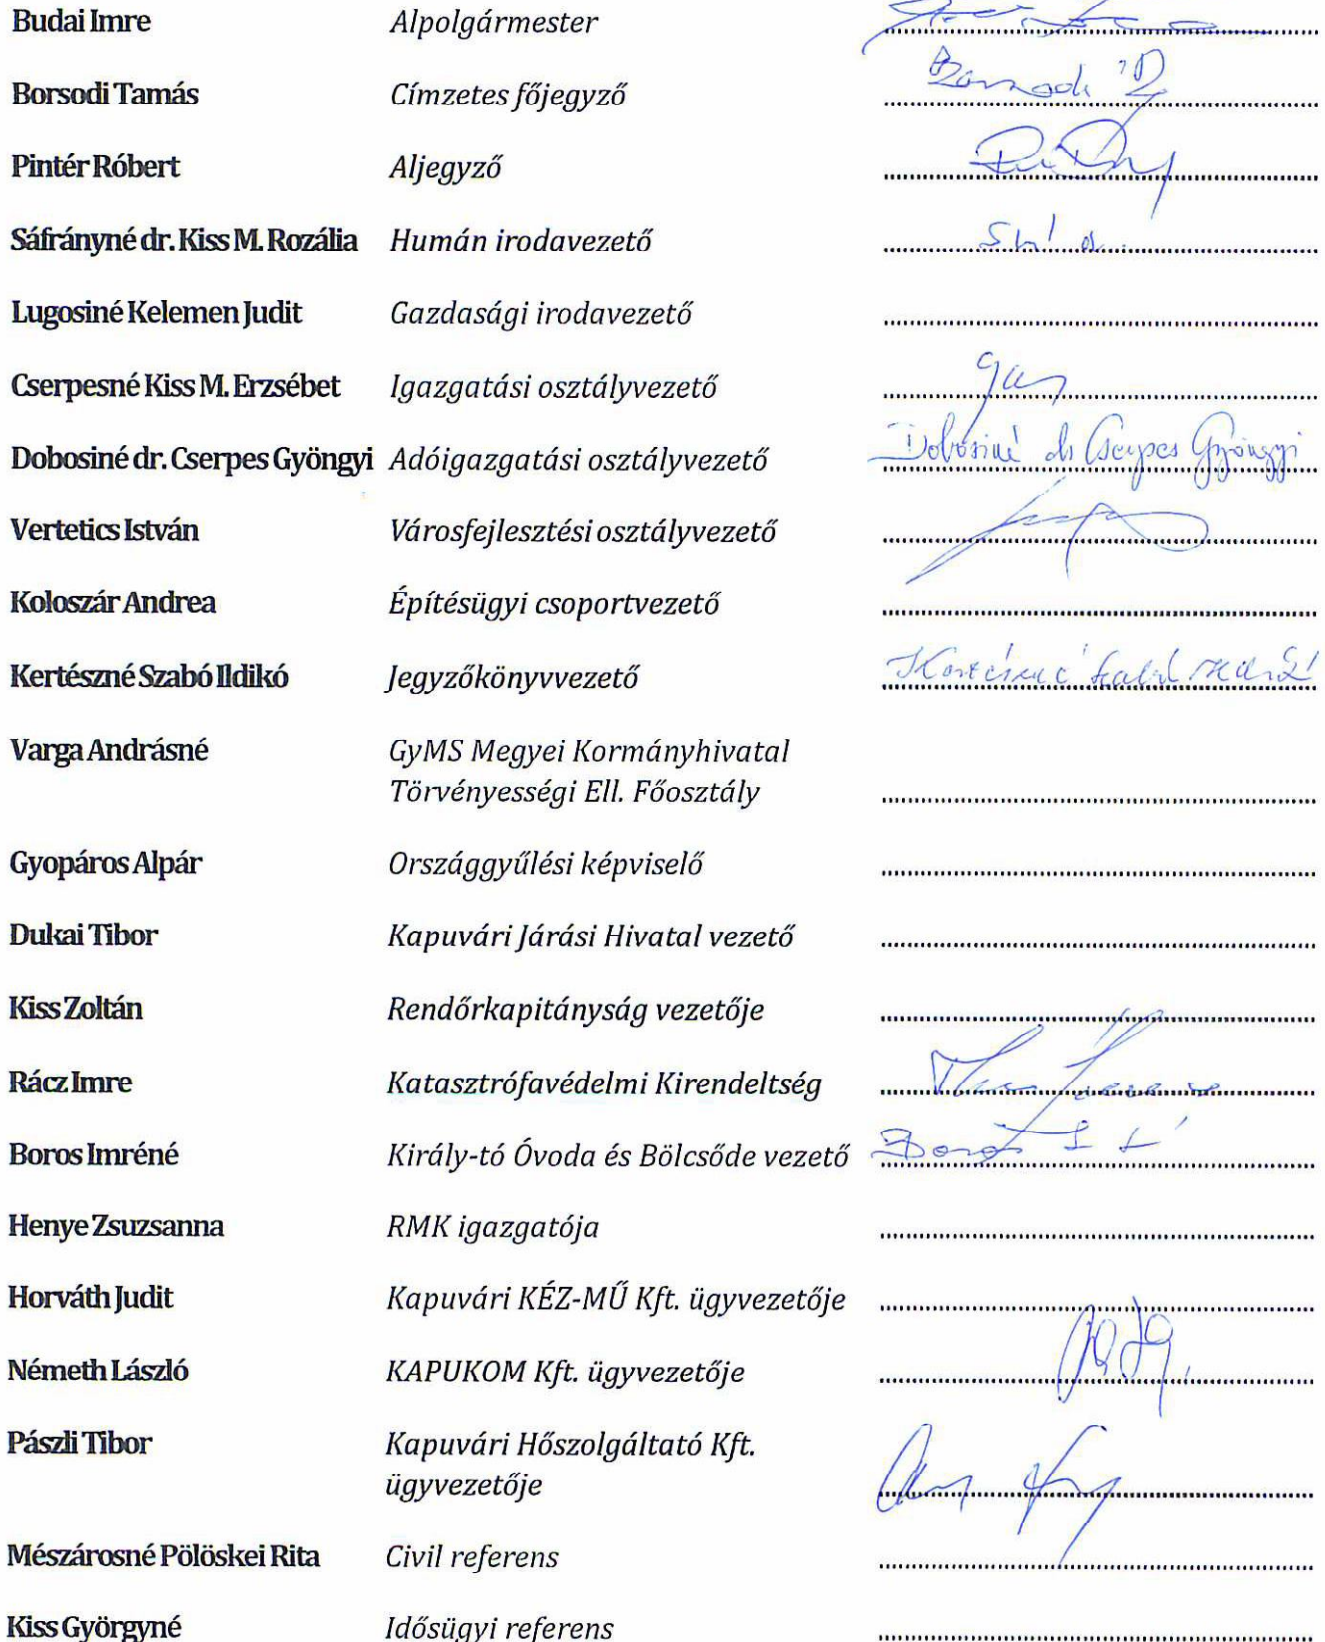 Budai Imre Alpolgármester
Borsodi Tamás Címzetes főjegyző Borsodi
Pintér Róbert Aljegyző
Sáfrányné dr. Kiss M. Rozália Humán irodavezető
Lugosiné Kelemen Judit Gazdasági irodavezető
Cserpesné Kiss M. Erzsébet Igazgatási osztályvezető
Dobosiné dr. Cserpes Gyöngyi Adóigazgatási osztályvezető Dobosiné dr Cserpes Gyöngyi
Vertetics István Városfejlesztési osztályvezető
Koloszár Andrea Építésügyi csoportvezető
Kertészné Szabó Ildikó Jegyzőkönyvvezető Kertészné Szabó Ildikó
Varga Andrásné GyMS Megyei Kormányhivatal
Törvényességi Ell. Főosztály
Gyopáros Alpár Országgyűlési képviselő
Dukai Tibor Kapuvári Járási Hivatal vezető
Kiss Zoltán Rendőrkapitányság vezetője
Rácz Imre Katasztrófavédelmi Kirendeltség
Boros Imréné Király-tó Óvoda és Bölcsőde vezető Boros
Henye Zsuzsanna RMK igazgatója
Horváth Judit Kapuvári KÉZ-MŰ Kft. ügyvezetője
Németh László KAPUKOM Kft. ügyvezetője
Pászli Tibor Kapuvári Hőszolgáltató Kft.
ügyvezetője
Mészárosné Pölöskei Rita Civil referens
Kiss Györgyné Idősügyi referens